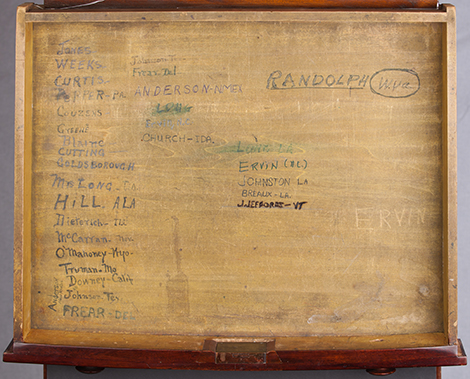 JONES
WEEKS
CURTIS
PEPPER-PA
COUZENS
Blaine
CUTTING
GOLDSBOROUGH
LONG-LA
HILL, ALA
Dieterich-Ill
McCarran-Nev
O'Mahoney-Wyo.
Truman-Mo
Downey-Calif
Johnson-Tex.
FREAR-DEL
Frear Del
ANDERSON-N.MEX
CHURCH-IDA.
RANDOLPH W.Va
LONG LA
ERVIN (N.C.)
JOHNSTON LA
BREAUX-LA
J. JEFFORDS-VT
ERVIN